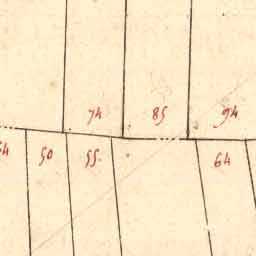 74 85 94
50 55. 64